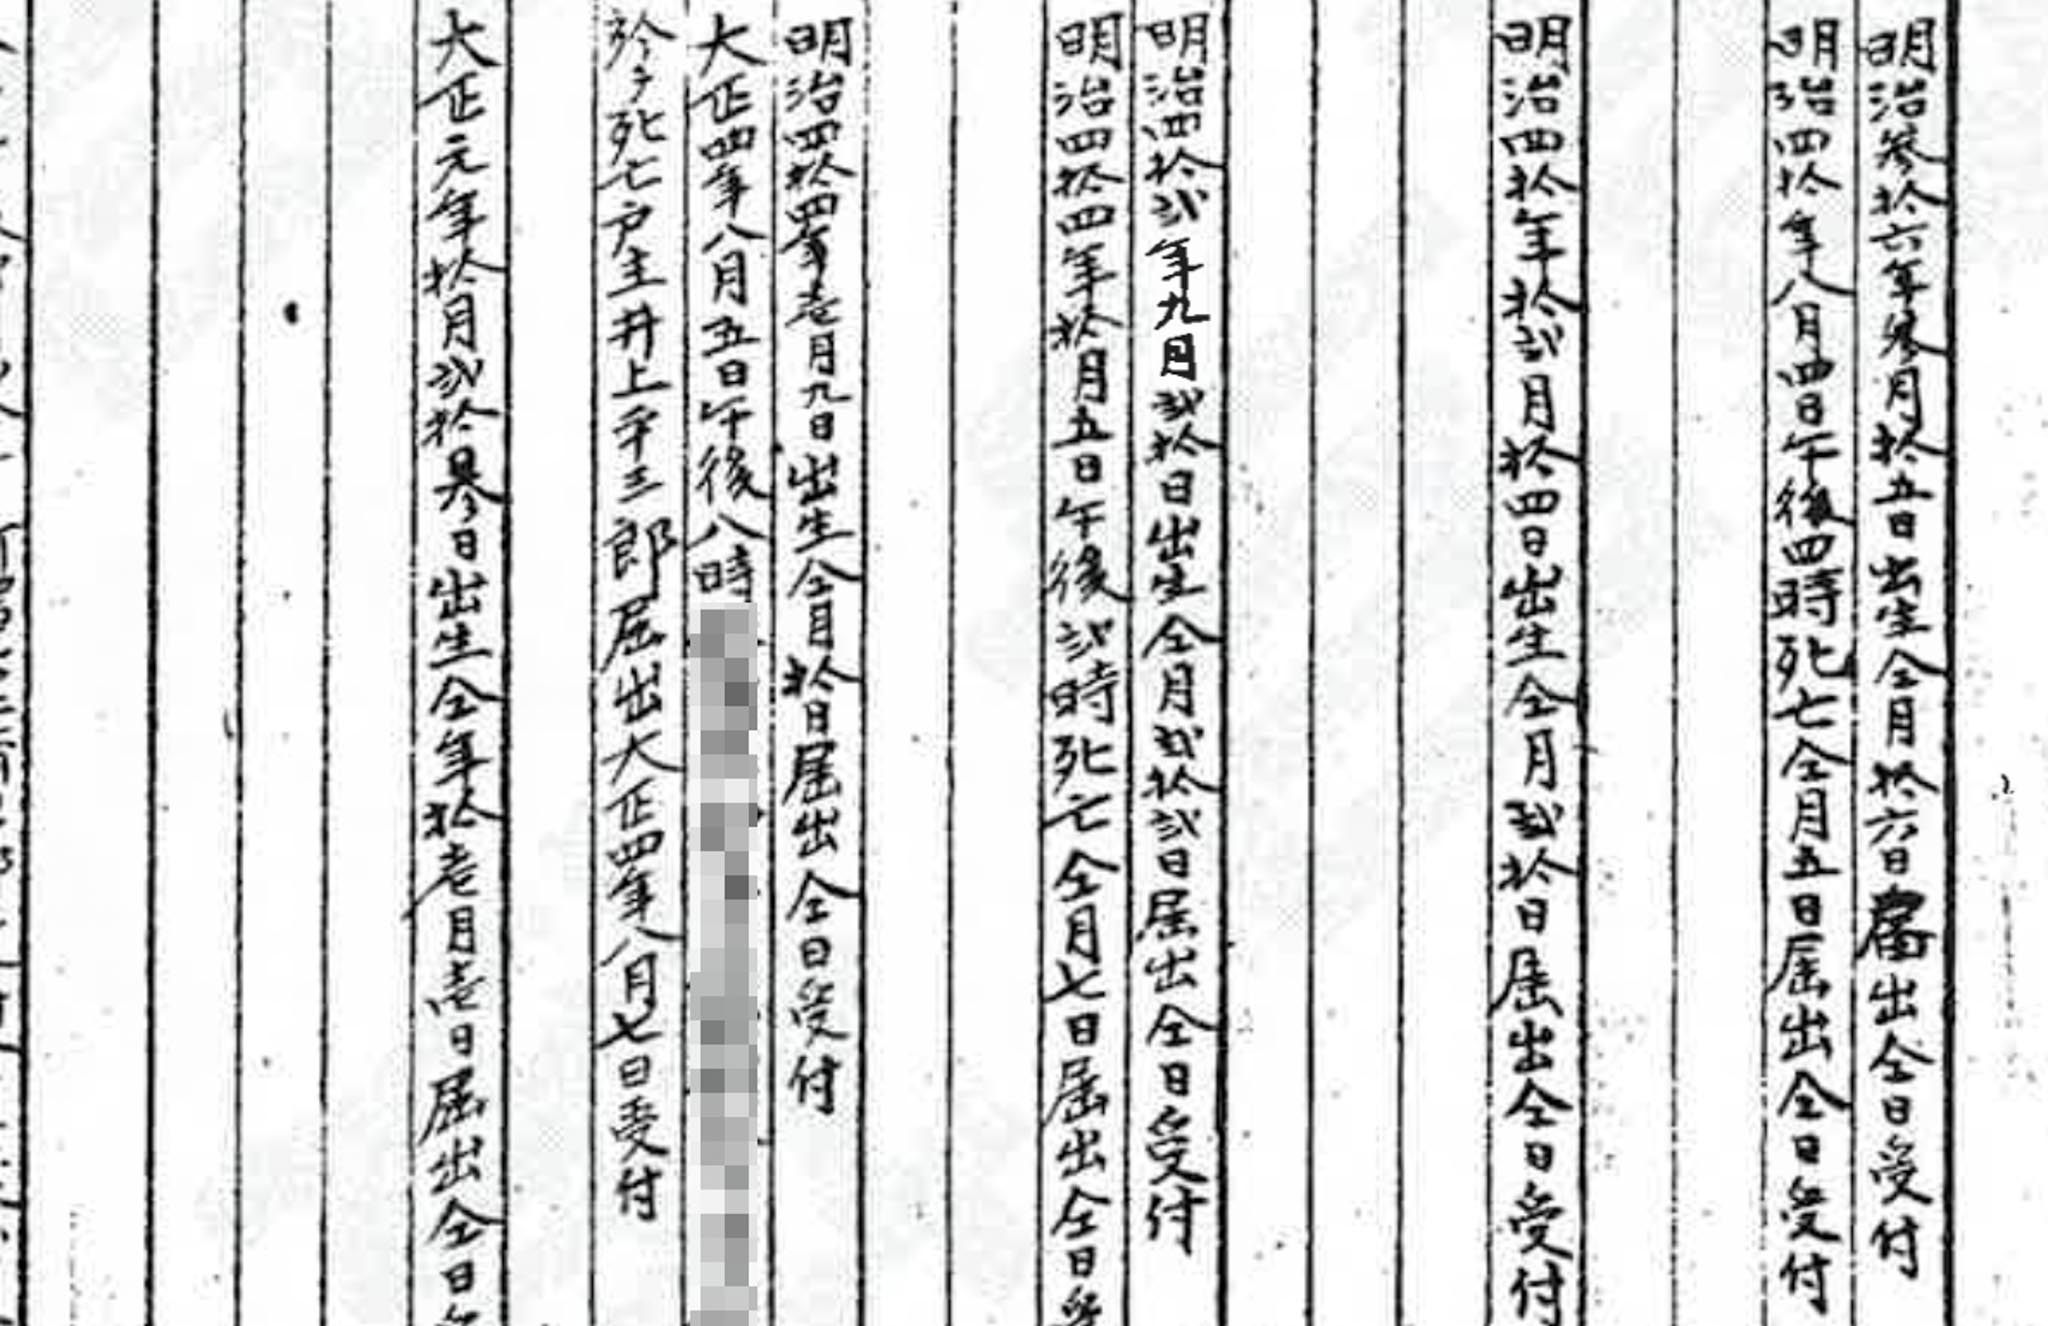 明治参拾六年参月拾五日出生仝月拾六日届出仝日受付
明治四拾年八月四日午後四時死亡仝月五日届出仝日受付
明治四拾年拾弐月拾四日出生仝月弐拾日届出仝日受付
明治四拾弐年九月弐拾日出生仝月弐拾弐日届出仝日受付
明治四拾四年拾月五日午後弐時死亡仝月七日届出仝日受
明治四拾四年壱月九日出生仝月拾日届出仝日受付
大正四年八月五日午後八時
於テ死亡戸主井上平三郎届出大正四年八月七日受付
大正元年拾月弐拾参日出生仝年拾壱月壱日届出仝日